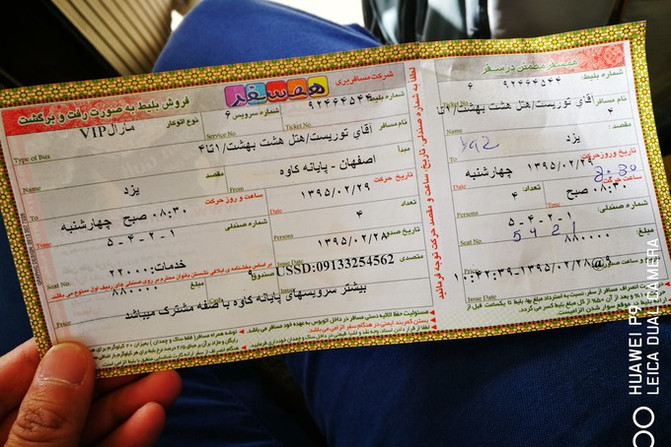 فروش بلیط به صورت رفت و برگشت
شرکت مسافربری
همسفر
نوع اتوکار
مارال VIP
Type of Bus
شماره سرویس
۶
Service No
شماره بلیط
۹۲۴۶۴۵۴۴
Ticket No.
نام مسافر
آقای توریست/هتل هشت بهشت/۱تا۴
Name
مبدا
اصفهان - پایانه کاوه
From
مقصد
یزد
To
تاریخ حرکت
۱۳۹۵/۰۲/۲۹
Date
ساعت و روز حرکت
۰۸:۳۰ صبح چهارشنبه
Time
تعداد
۴
Persons
شماره صندلی
۵-۴-۲-۱
Seat No.
تاریخ صدور
۱۳۹۵/۰۲/۲۸
Issue Date
خدمات:۲۲۰۰۰
متصدی
USSD:09133254562
صندوق
مبلغ
۸۸۰۰۰۰
Price
Issue Date
بیشتر سرویسهای پایانه کاوه با صفه مشترک میباشد
لطفا به شماره صندلی، تاریخ، ساعت و مقصد حرکت توجه فرمائید
همسفر مطمئن در سفر
شماره بلیط
۹۲۴۶۴۵۴۴
۶
Ticket No.
نام مسافر
آقای توریست/هتل هشت بهشت/۱تا۴
Name
مقصد
یزد
yaz
To
تاریخ وروزحرکت
۱۳۹۵/۰۲/۲۹ چهارشنبه
Date
8:30
ساعت حرکت
۰۸:۳۰ صبح
Time
تعداد
۴
Persons
شماره صندلی
۵-۴-۲-۱
Seat No.
5 4 2 1
مبلغ
۸۸۰۰۰۰
Price
۱۰:۴۲:۳۹-۱۳۹۵/۰۲/۲۸@۹
Issue Date
HUAWEI P9
LEICA DUAL CAMERA